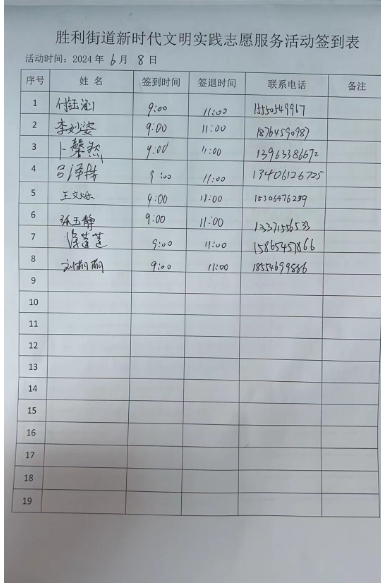 胜利街道新时代文明实践志愿服务活动签到表
活动时间：2024年 6月 8日
序号 姓名 签到时间 签退时间 联系电话 备注
1 9:00 11:00
2 李妙姿 9:00 11:00 18764590987
3 卜馨然 9:00 11:00 13963386692
4 吕泽林 9:00 11:00 13406126705
5 9:00 11:00
6 张玉静 9:00 11:00 13371556533
7 徐莲莲 9:00 11:00 15865457866
8 刘丽丽 9:00 11:00 18554699866
9
10
11
12
13
14
15
16
17
18
19